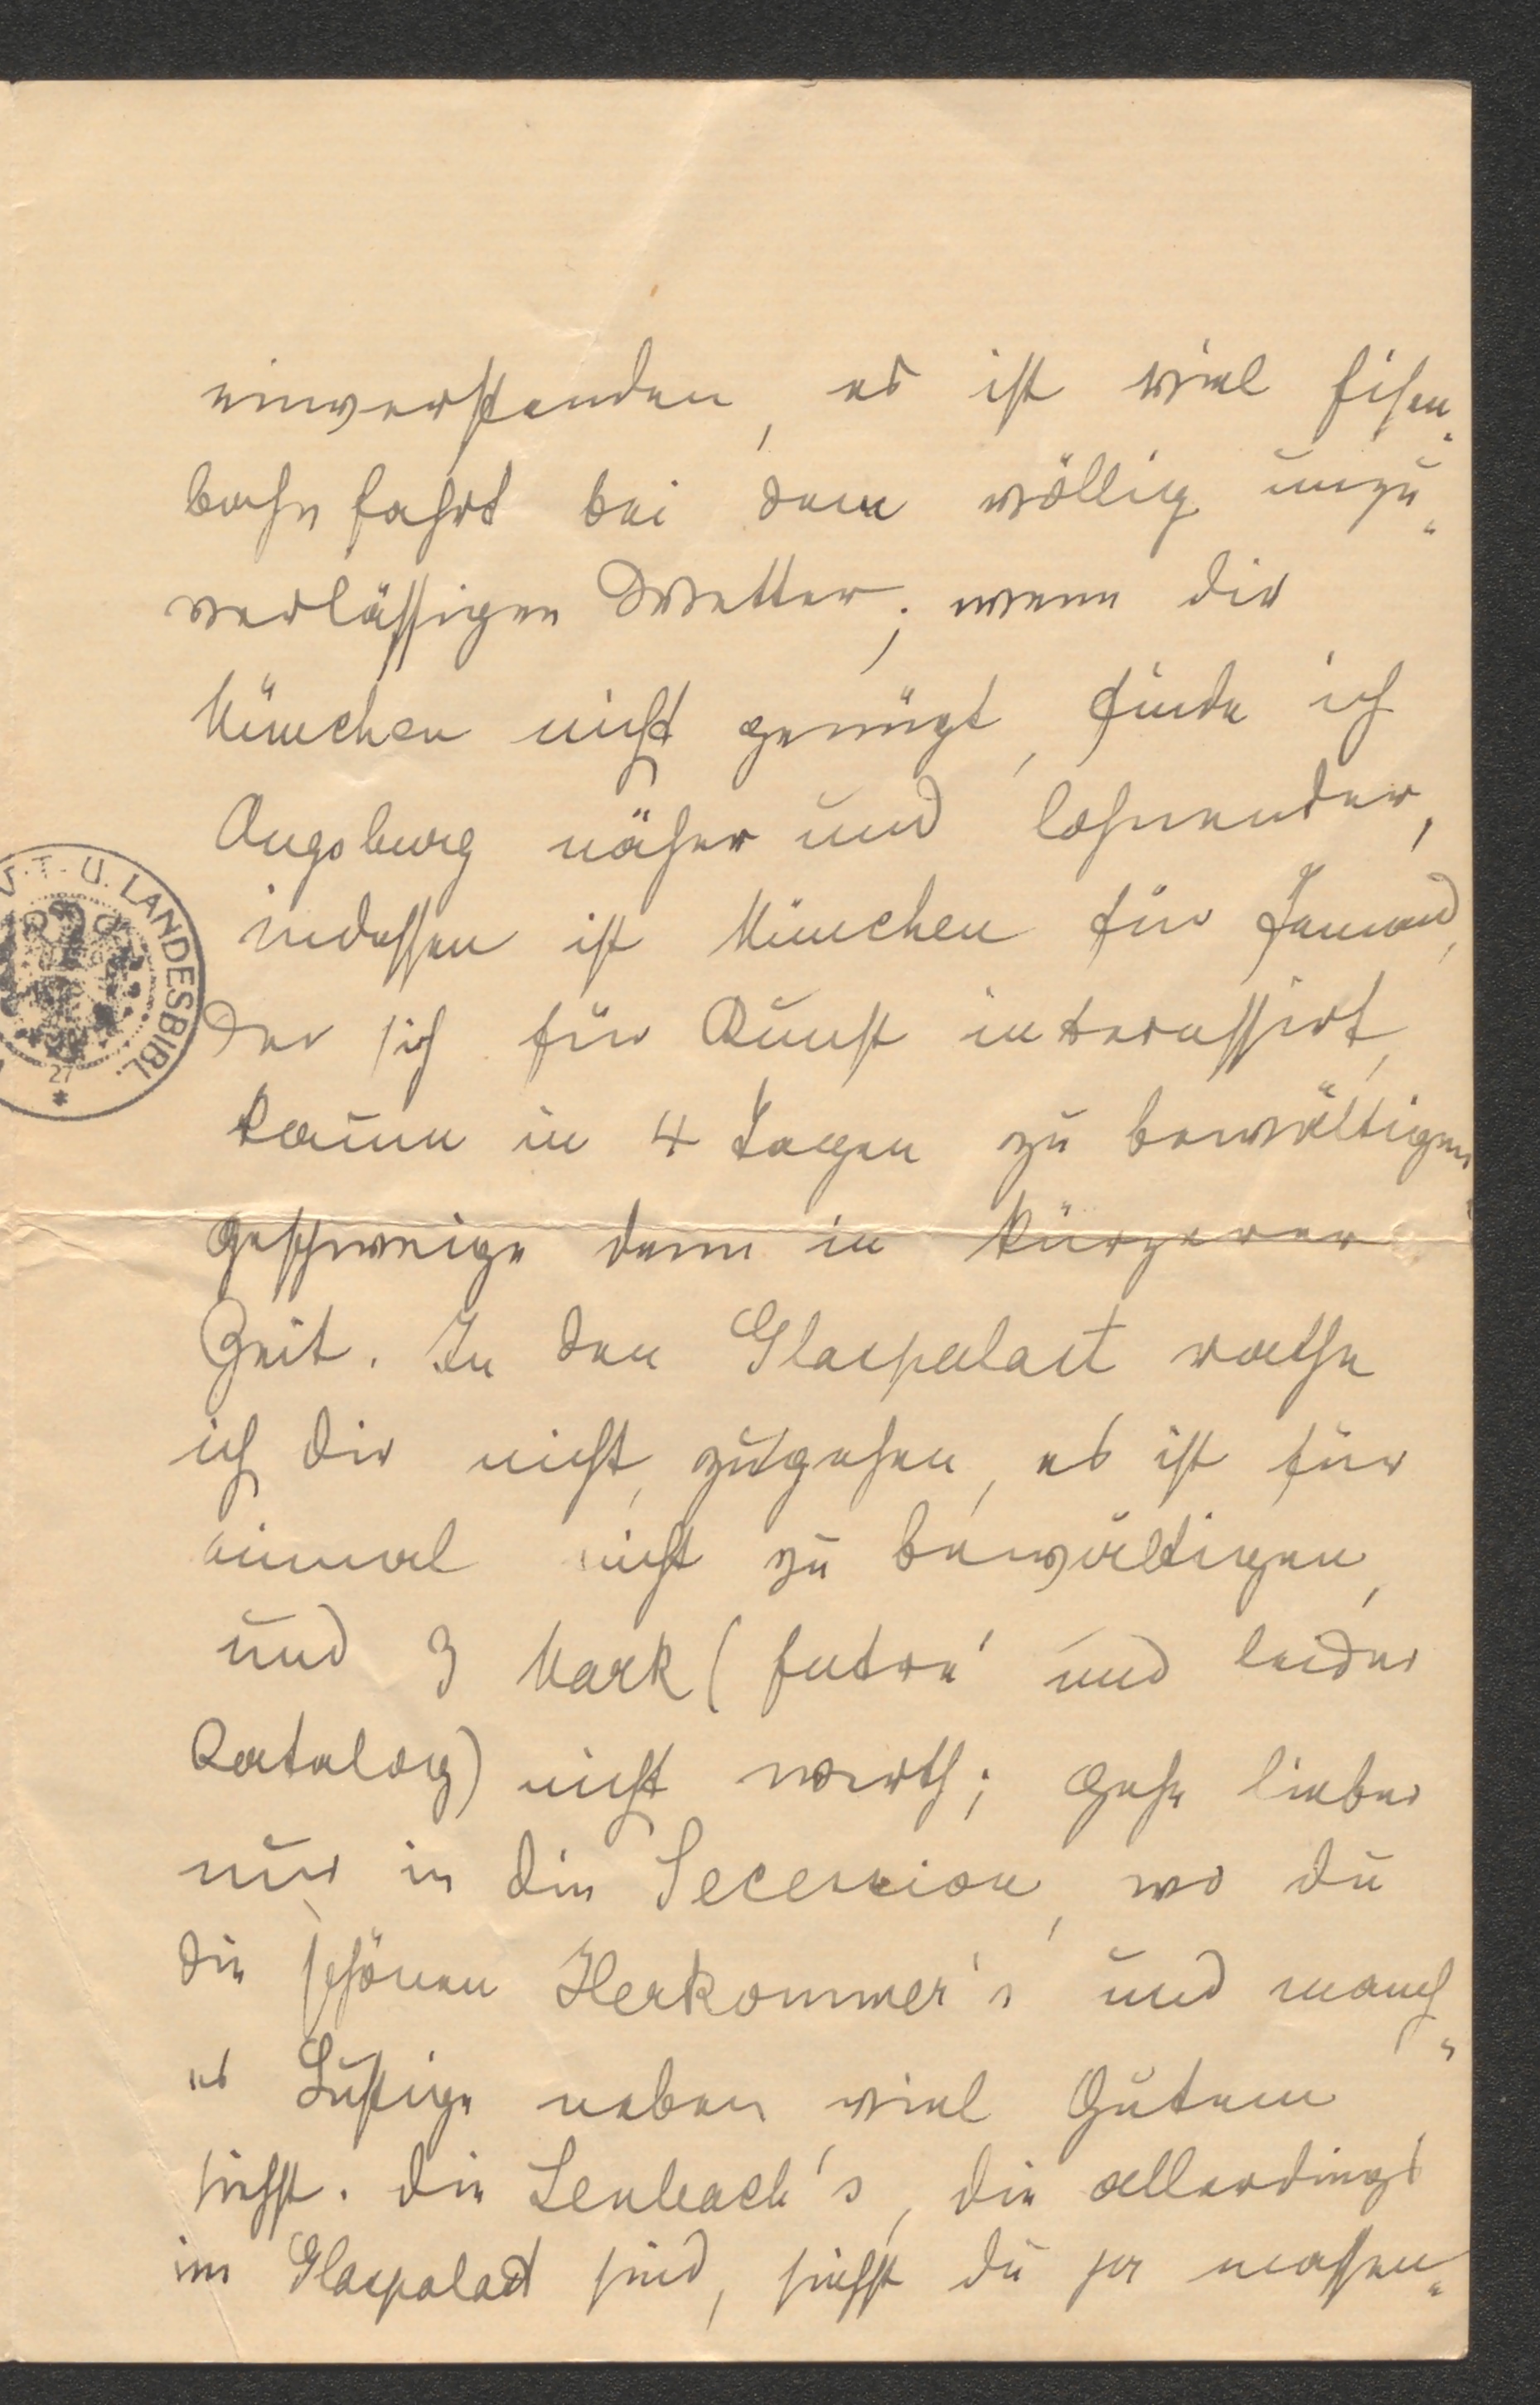 einverstanden, es ist viel Eisen„
bahnfahrt bei dem völlig unzu„
verlässigen Wetter; wenn dir
München nicht genügt, finde ich
Augsburg näher und lohnender,
indessen ist München für Jemand,
der sich für Kunst interessirt,
kaum in 4 Tagen zu bewältigen,
geschweige denn in kürzerer
Zeit. In den Glaspalast rathe
ich dir nicht, zu gehen, es ist für
einmal nicht zu bewältigen,
und 3 Mark (Entré und leider
Katalog) nicht werth; gehe lieber
nur in die Secession, wo du
die schönen Herkommer's und manch„
es Lustige neben viel Gutem
siehst. Die Lenbach's, die allerdings
im Glaspalast sind, siehst du ja massen„
T. U. LANDESBIBL.
27